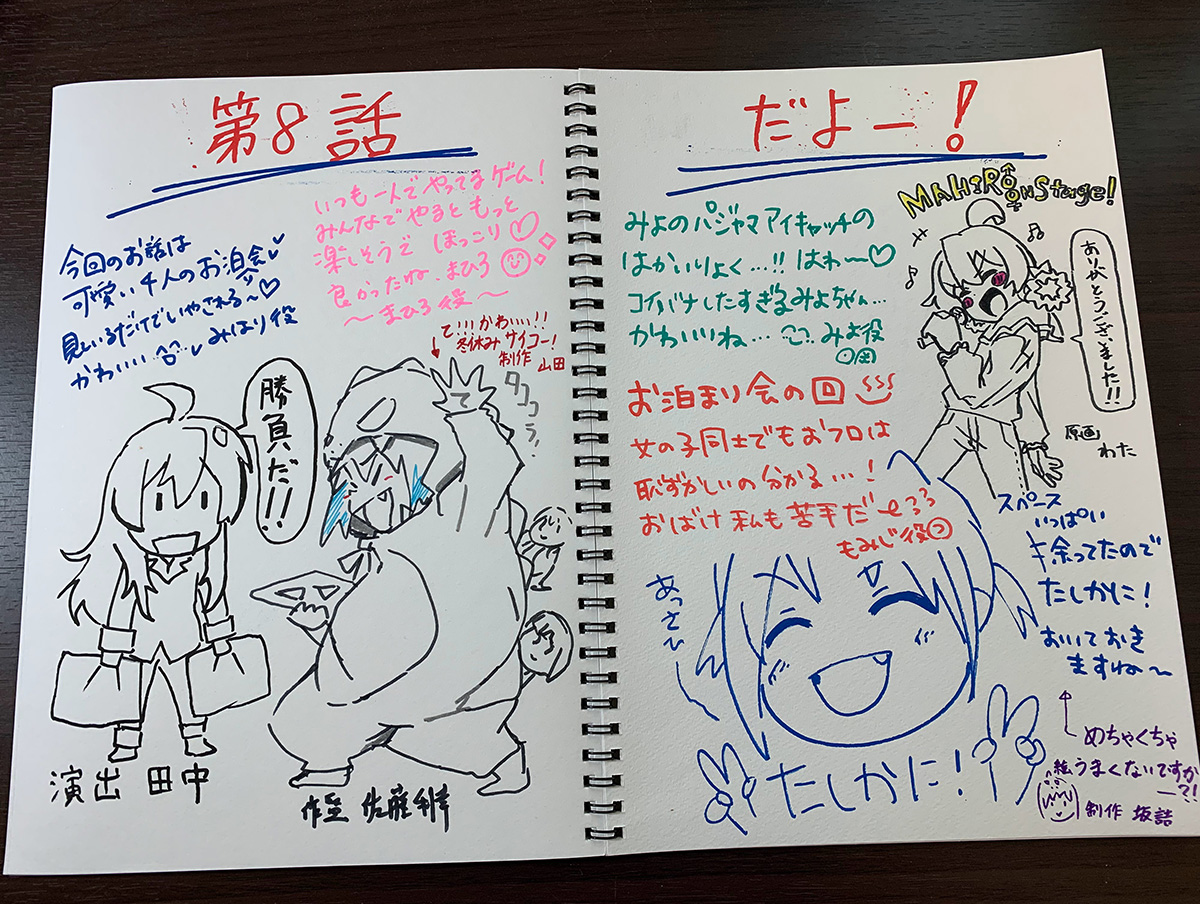 第8話
今回のお話は
可愛い4人のお泊会
見ているだけでいやされる〜♡
かわいい みはり役
いつも一人でやってるゲーム!
みんなでやるともっと
楽しそうで ほっこり♡
良かったね、まひろ
〜まひろ役〜
て!!!かわいい!!
冬休みサイコー!
制作 山田
勝負だ!!
演出 田中
作監 佐藤利幸
だよー!
みよのパジャマアイキャッチの
はかいりょく…!! はわ〜♡
コイバナしたすぎるみよちゃん…
かわいいね… みよ役
お泊まり会の回
女の子同士でもおフロは
恥ずかしいの分かる…!
おばけ私も苦手だ
もみじ役
MAHIRO ON Stage!
ありがとうございました!!
原画
わた
スペース
いっぱい
余ってたので
たしかに!
おいておき
ますね〜
あっさ〜
たしかに!
めちゃくちゃ
絵うまくないですか
ー?!
制作 坂詰